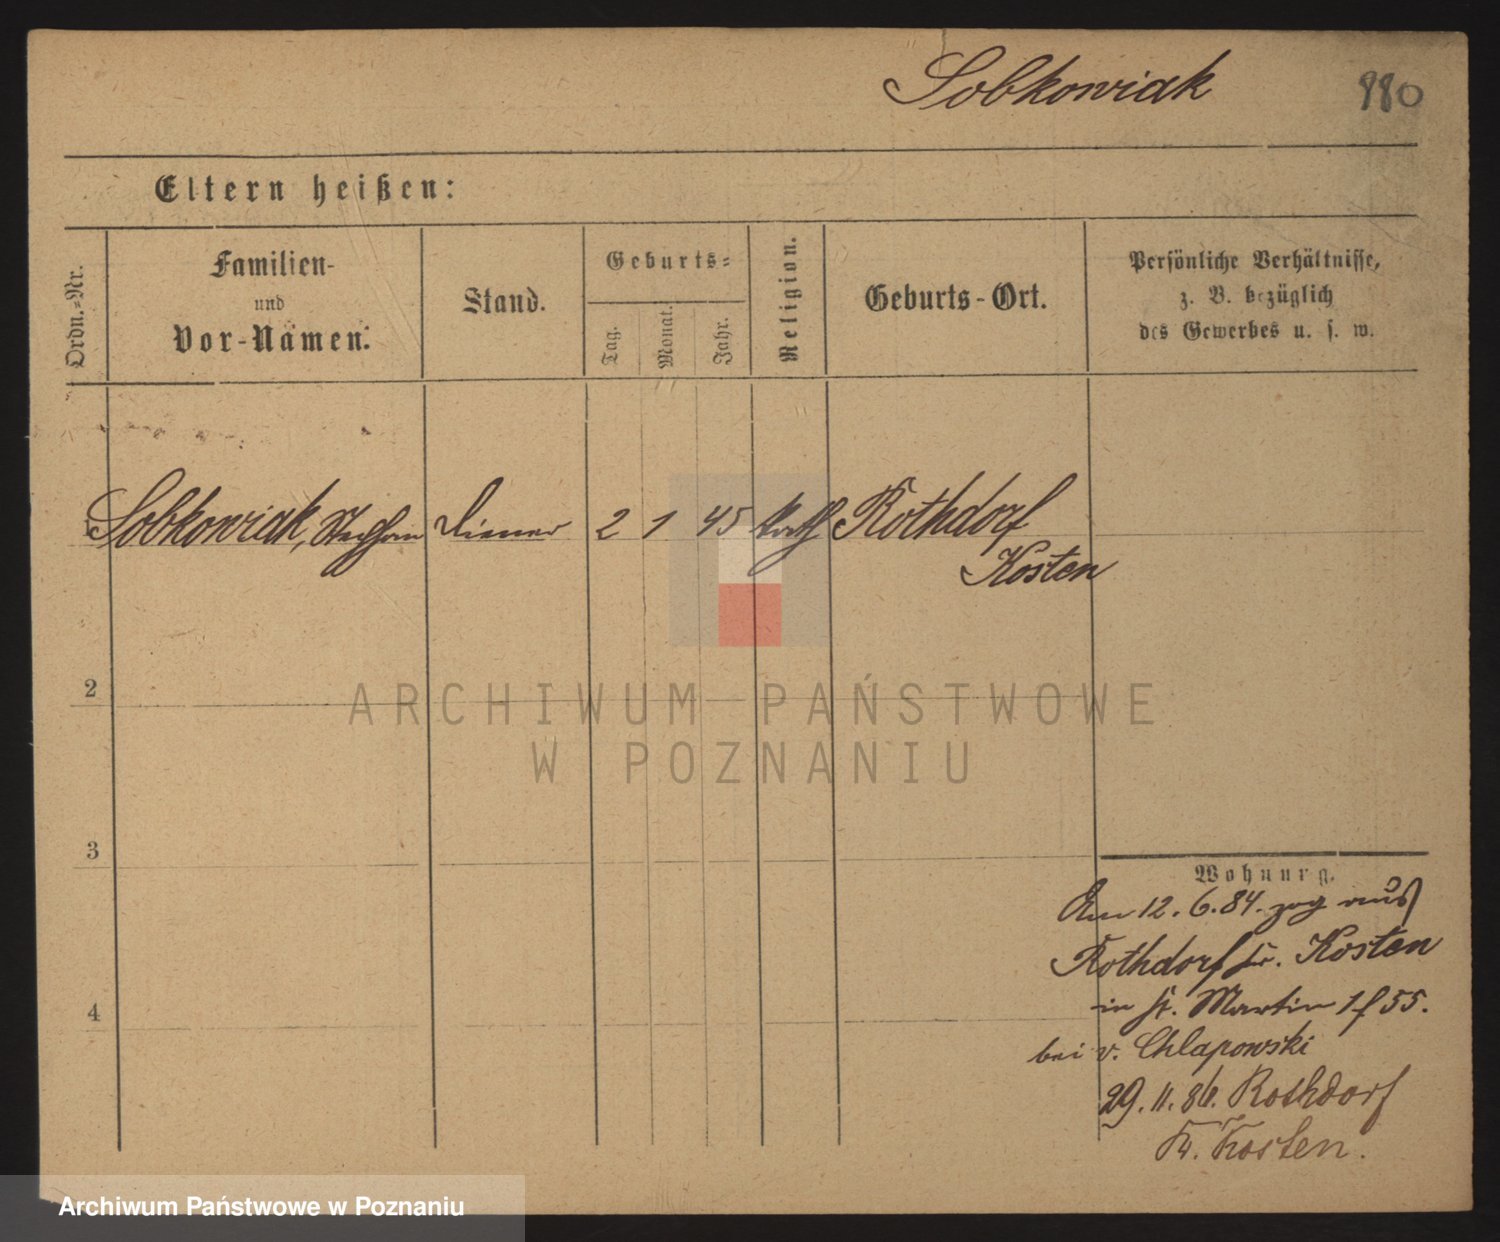 Sobkowiak 880
Eltern heißen:
Ordn.-Nr.
Familien-
und
Vor-Namen.
Stand.
Geburts-
Tag.
Monat.
Jahr.
Religion.
Geburts-Ort.
Persönliche Verhältnisse,
z. B. bezüglich
des Gewerbes u. s. w.
1 Sobkowiak, Stephan Diener 2 1 45 kath Rothdorf
Kosten
2
3
4
Wohnung.
Am 12.6.84. zog aus
Rothdorf Kr. Kosten
in St. Martin 55.
bei v. Chlapowski
29.11.86. Rothdorf
Kr. Kosten.
ARCHIWUM PAŃSTWOWE
W POZNANIU
Archiwum Państwowe w Poznaniu